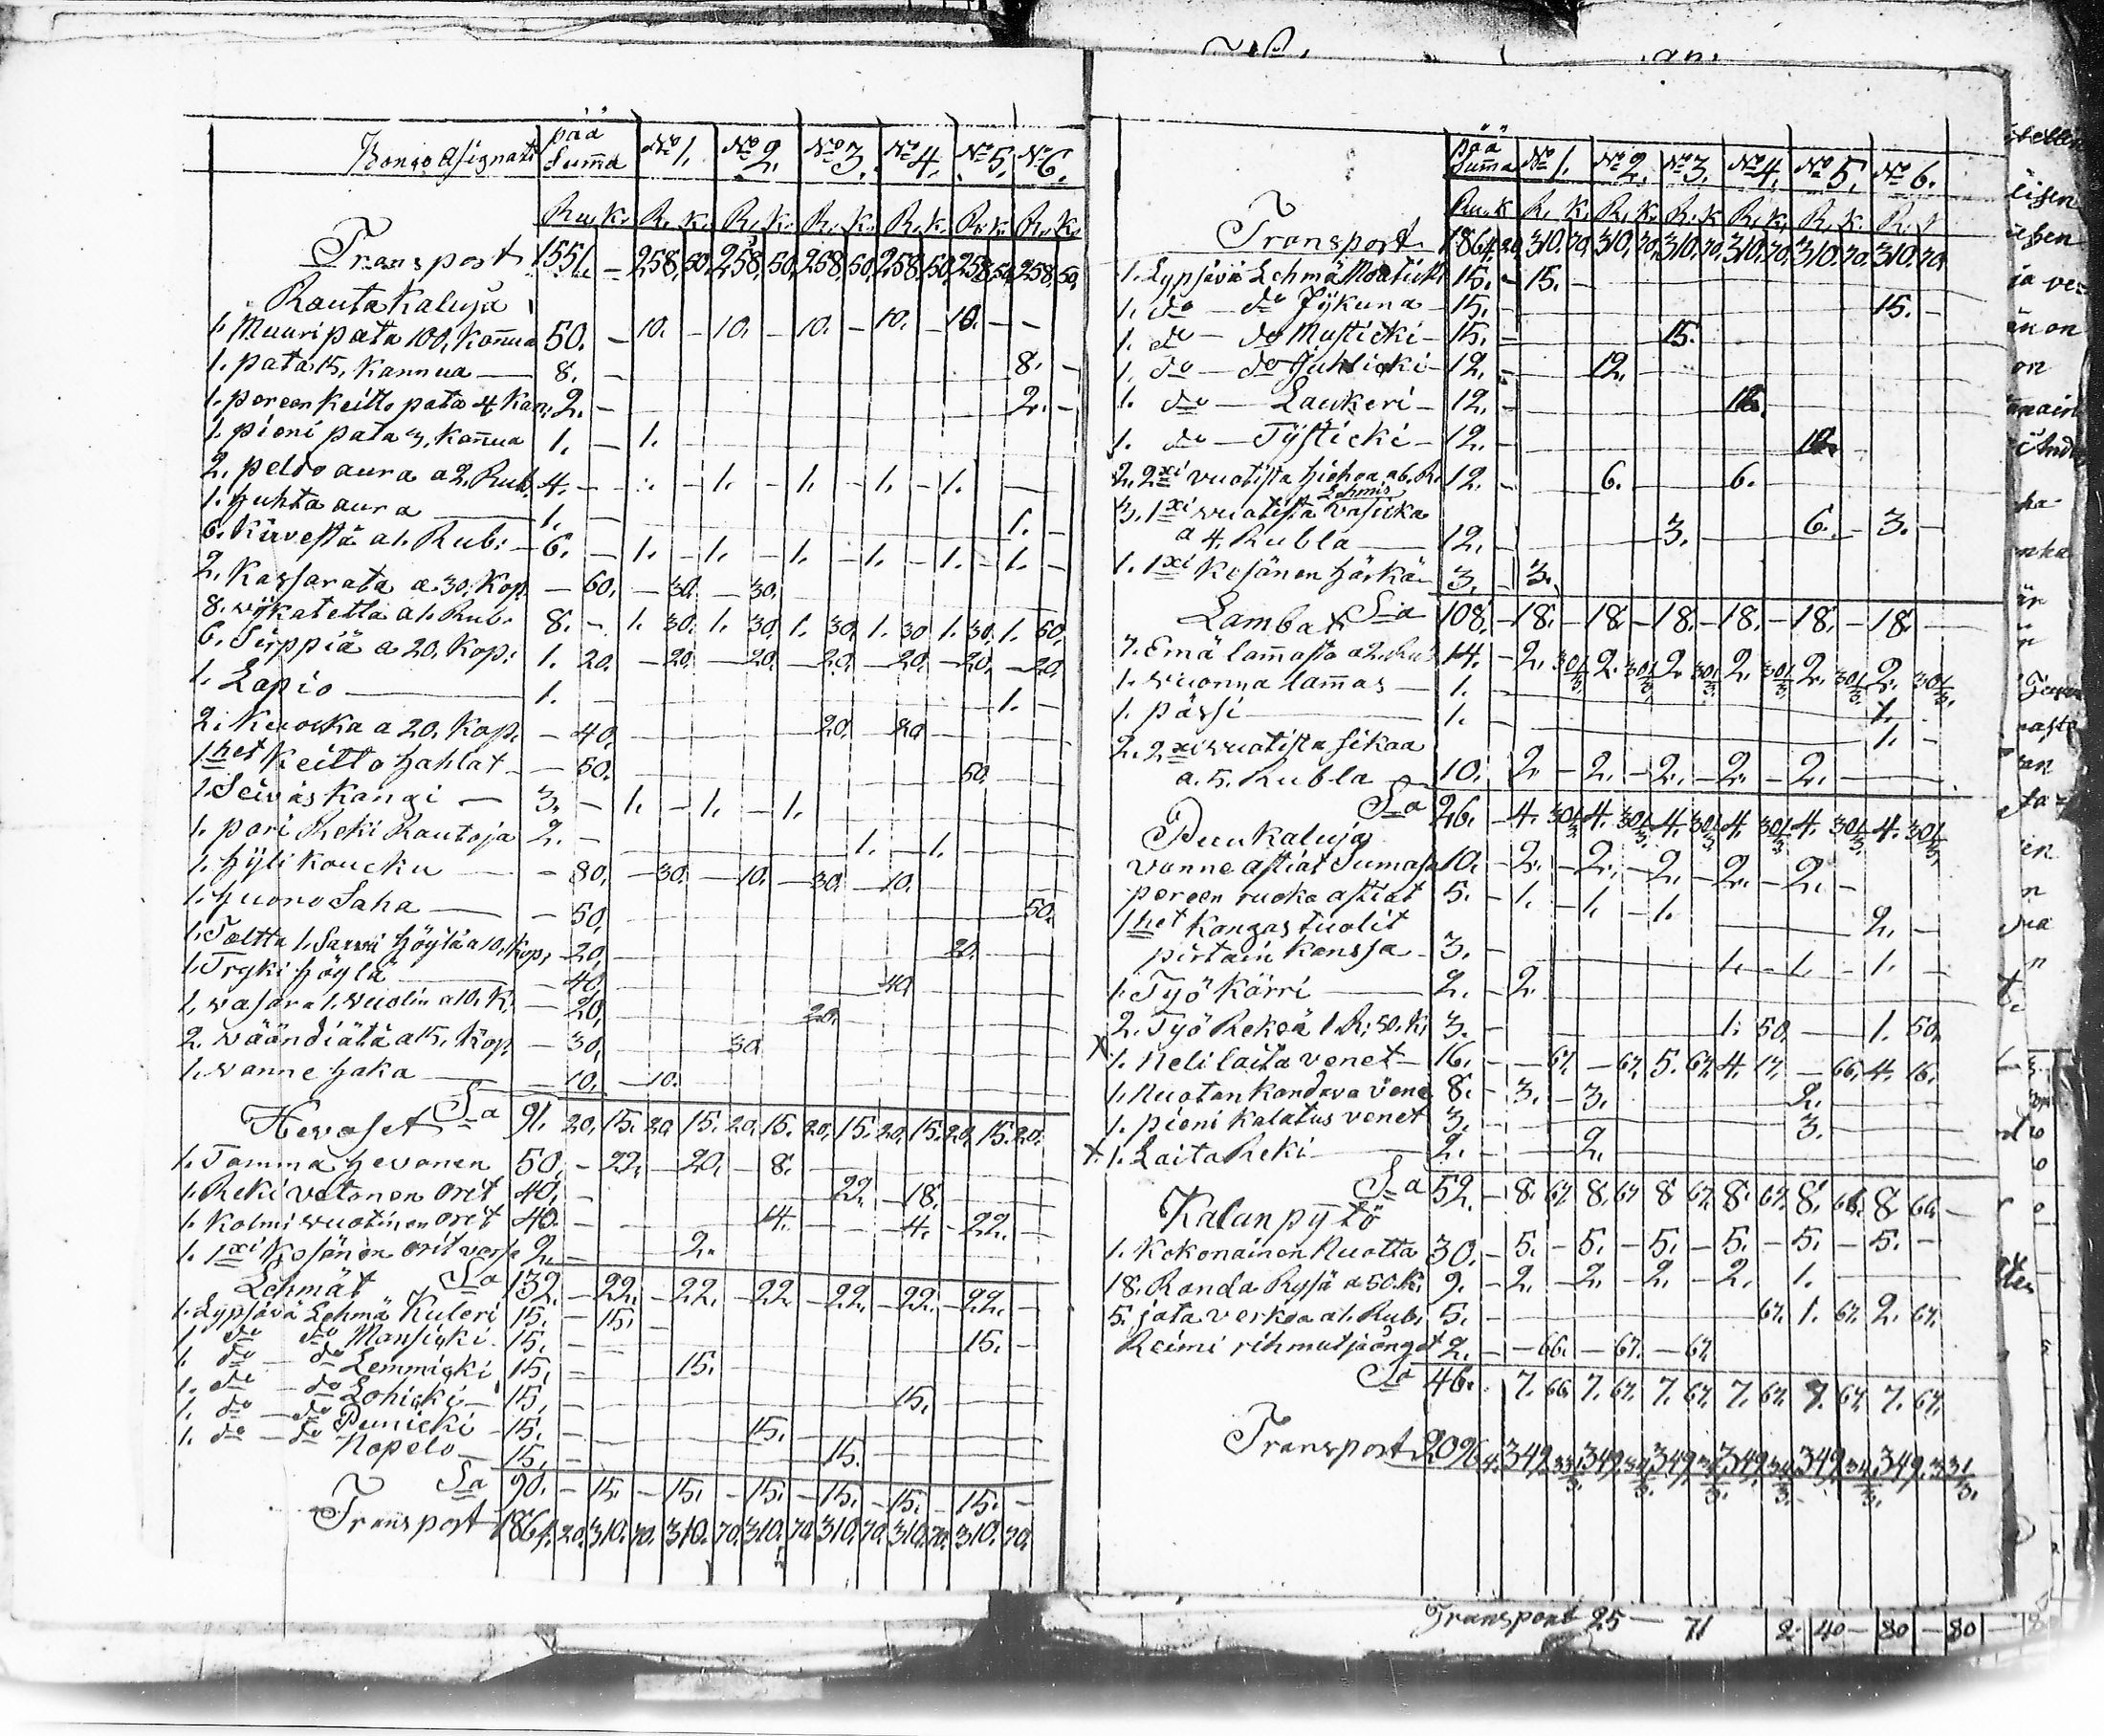 pää
Summa No 1. No 2. No 3. No 4. No 5. No 6.
Ru. k. R. K. R. K. R. K. R. k. R. k. R. K.
Transport 1551. – 258. 50. 258. 50. 258. 50. 258. 50. 258. 50. 258. 50.
Rauta Kaluja
1. Muuri pata 100. Kannua 50. – 10. – 10. – 10. – 10. – 10. – –
1. pata 15. Kannua — 8. – 8. –
1. poreen Keitto pata 4 Kan. 2. – 2. –
1. pieni pata 3. Kannua 1. – 1.
2. peldo aura a 2. Rub. 4. – – 1. – 1. – 1. – 1.
1. Huhta aura — 1. – 1. –
6. Kirvestä a 1. Rub: – 6. – 1. – 1. – 1. – 1. – 1. – 1. –
2. Kassarata a 30. Kop. – 60. – 30. – 30.
8. wijkatetta a 1. Rub. 8. – 1. 30. 1. 30. 1. 30. 1. 30. 1. 30. 1. 50.
6. Sirppiä a 20. Kop: 1. 20. – 20. – 20. – 20. – 20. – 20. – 20.
1. Lapio — 1. 1. –
2. Kuocka a 20. Kop. – 40. 20. 20.
1het Keitto Hahlat – 50. 50.
1. Seiväs Kangi — 3. – 1. – 1. – 1.
1. pari Reki Rautoja 2. – 1. – 1.
1. Hyli koucku — – 80. – 30. – 10. – 30. – 10.
1. Huono Saha — – 50. 50.
1. Taltta 1. Höylä a 10. Kop. – 20. 20.
1. Tryki Höylä — – 40. 40.
1. vasara 1. vuolin a 10. K. – 20. 20.
2. wäändiätä a 15. Kop. – 30. 30.
1. vanne Haka — – 10. – 10.
Sa 91. 20. 15. 20. 15. 20. 15. 20. 15. 20. 15. 20. 15. 20.
Hevoset
1. Tamma Hevonen 50. – 22. – 20. – 8.
1. Reki vetonen orit 40. – 22. – 18.
1. Kolmi wuotinen orit 40. – 14. 4. – 22. –
1. 1xi Kesänen orit varsa 2. – 2.
Sa 132. – 22. – 22. – 22. – 22. – 22. – 22. –
Lehmät
1. Lypsävä Lehmä Kuleri 15. – 15.
1. do do Mansicki 15. – 15. –
1. do – do Lemmicki 15. – 15.
1. do – do Lohicki – 15. – 15.
1. do – do Punicki – 15. – 15.
1. do – do Kopelo – 15. – 15.
Sa 90. – 15. – 15. – 15. – 15. – 15. – 15. –
Transport 1864. 20. 310. 70. 310. 70. 310. 70. 310. 70. 310. 70. 310. 70.
pää
Summa No 1. No 2. No 3. No 4. No 5. No 6.
Ru. K R. K. R. K. R. K R. K. R. K. R. K
Transport 1864. 20. 310. 70. 310. 70. 310. 70. 310. 70. 310. 70. 310. 70.
1. Lypsävä Lehmä 15. – 15. –
1. do – do Jykuna – 15. – 15. –
1. do – do Musticki – 15. – 15.
1. do – do Juhlicki – 12. – 12.
1. do – Laukeri – 12. – 12.
1. do – Tysticki – 12. – 12.
2. 2xi vuotista Hiehoa a 6. R. 12. – 6. 6.
Lehmis
3. 1xi vuotista vasicka
a 4. Rubla — 12. – 3. 6. – 3. –
1. 1xi Kesänen Härkä – 3. – 3.
Sa 108. – 18. – 18. – 18. – 18. – 18. – 18. –
Lambat
7. Emä lammasta a 2. Ru. 14. – 2. 30 1/3. 2. 30 1/3. 2. 30 1/3. 2. 30 1/3. 2. 30 1/3. 2. 30 1/3.
1. vuonna lammas — 1. – 1.
1. pässi — 1. – 1. –
2. 2xi vuotista sikaa
a. 5. Rubla — 10. 2. – 2. – 2. – 2. – 2. –
Sa 26. – 4. 30 1/3. 4. 30 1/3. 4. 30 1/3. 4. 30 1/3. 4. 30 1/3. 4. 30 1/3.
Puukaluja
vanne astiat Sumasa 10. – 2. – 2. – 2. – 2. – 2. –
pereen ruoka astiat 5. – 1. – 1. – 1. 2. –
1het Kangas tuolit
pirtain kanssa – 3. – 1. – 1. – 1. –
1. Työ Kärri — 2. – 2.
2. Työ Rekeä 1. R: 50. K: 3. – 1. 50. 1. 50.
X 1. Neli laita venet – 16. – – 67. – 67. 5. 67. 4. 17. – 66. 4. 16.
1. Nuotan Kandava vene 8. – 3. – 3. 2.
1. pieni Kalatus venet 3. – 3.
X 1. Laita Reki — 2. – 2.
Sa 52. – 8. 67. 8. 67. 8. 67. 8. 67. 8. 66. 8. 66. –
Kalanpytö
1. Kokonainen Nuotta 30. – 5. – 5. – 5. – 5. – 5. – 5. –
18. Randa Rysä a 50. K: 9. – 2. – 2. – 2. – 2. 1.
5. jata verkoa a 1. Rub. 5. – 67. 1. 67. 2. 67.
Reimi rihmat ja onget 2. – – 66. – 67. – 67.
Sa 46. 7. 66. 7. 67. 7. 67. 7. 67. 7. 67. 7. 67.
Transport 2096. 349. 349. 349. 349. 349. 349.
Transport 25 — 71 2. 40 – 80 – 80